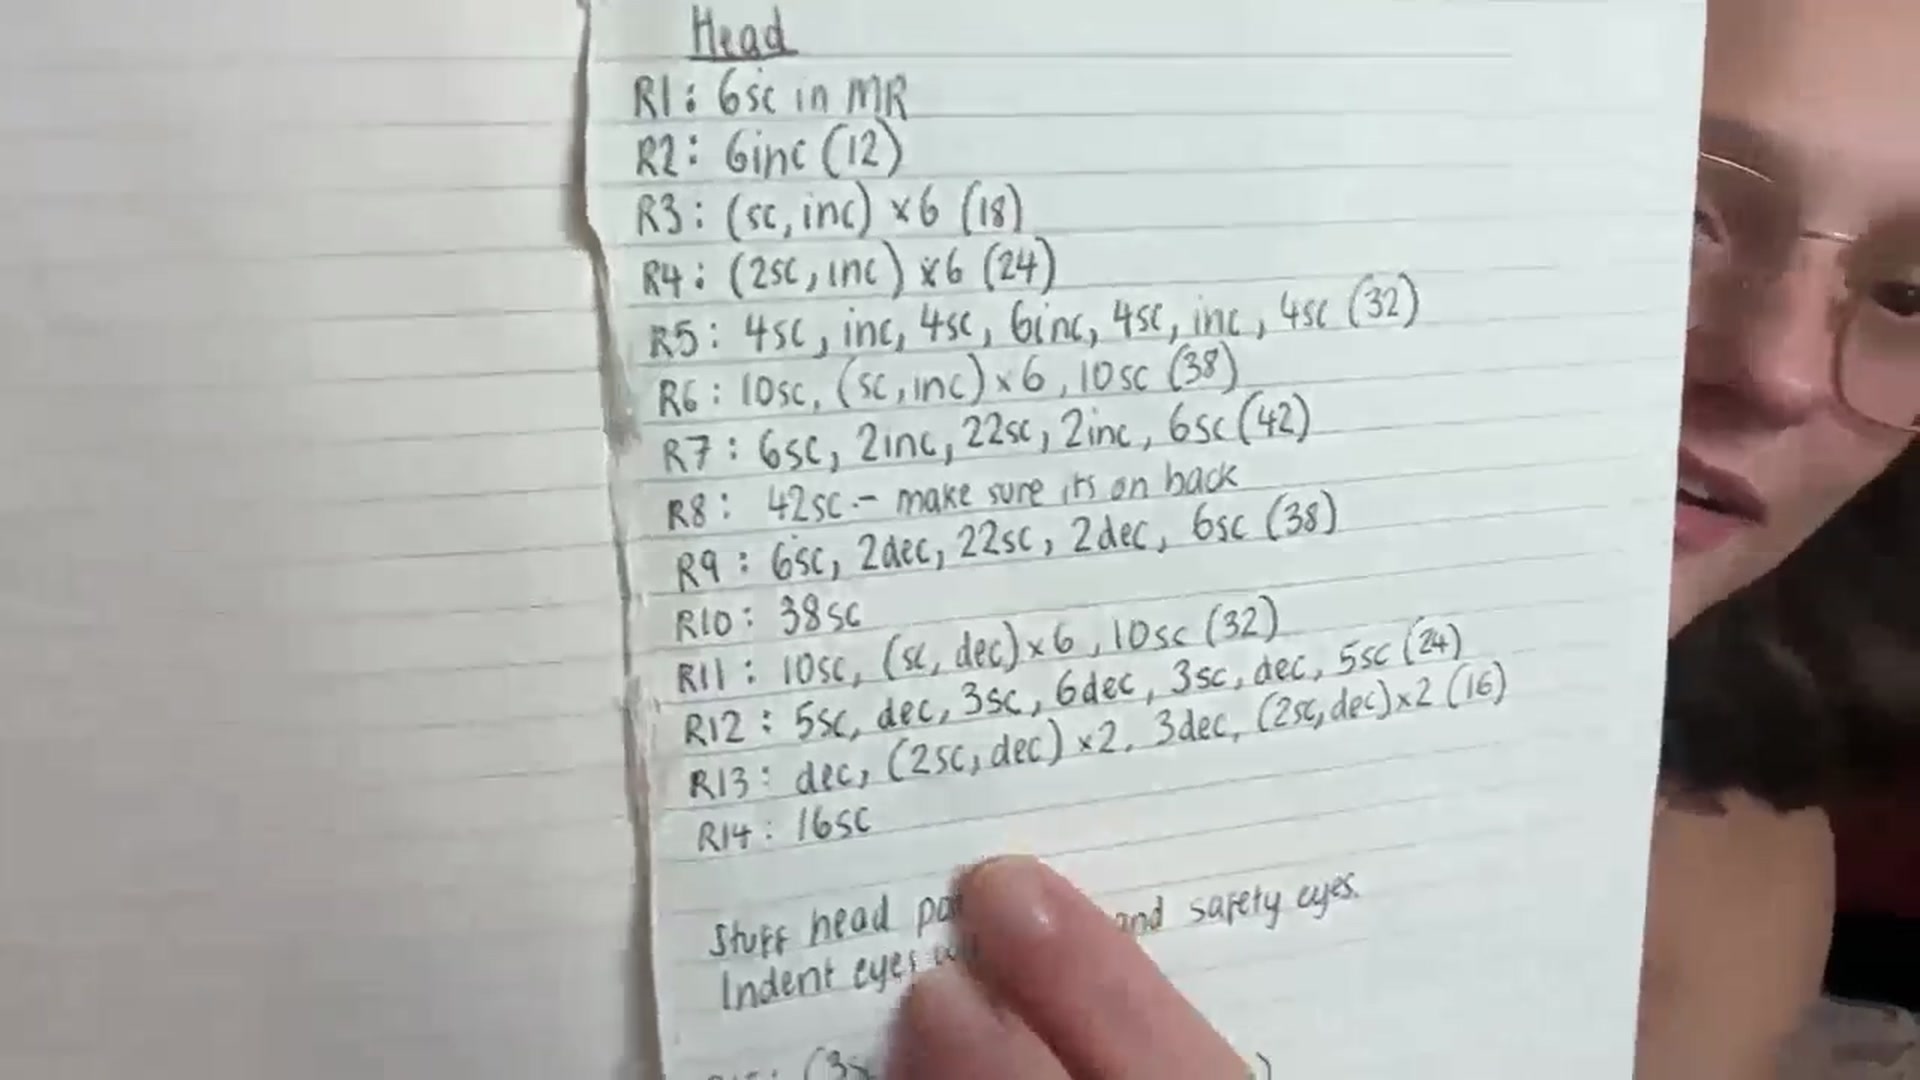 Head
R1: 6sc in MR
R2: 6inc (12)
R3: (sc, inc) x6 (18)
R4: (2sc, inc) x6 (24)
R5: 4sc, inc, 4sc, 6inc, 4sc, inc, 4sc (32)
R6: 10sc, (sc, inc) x6, 10sc (38)
R7: 6sc, 2inc, 22sc, 2inc, 6sc (42)
R8: 42sc - make sure its on back
R9: 6sc, 2dec, 22sc, 2dec, 6sc (38)
R10: 38sc
R11: 10sc, (sc, dec) x6, 10sc (32)
R12: 5sc, dec, 3sc, 6dec, 3sc, dec, 5sc (24)
R13: dec, (2sc, dec) x2, 3dec, (2sc, dec) x2 (16)
R14: 16sc
Stuff head and safety eyes.
Indent eyes